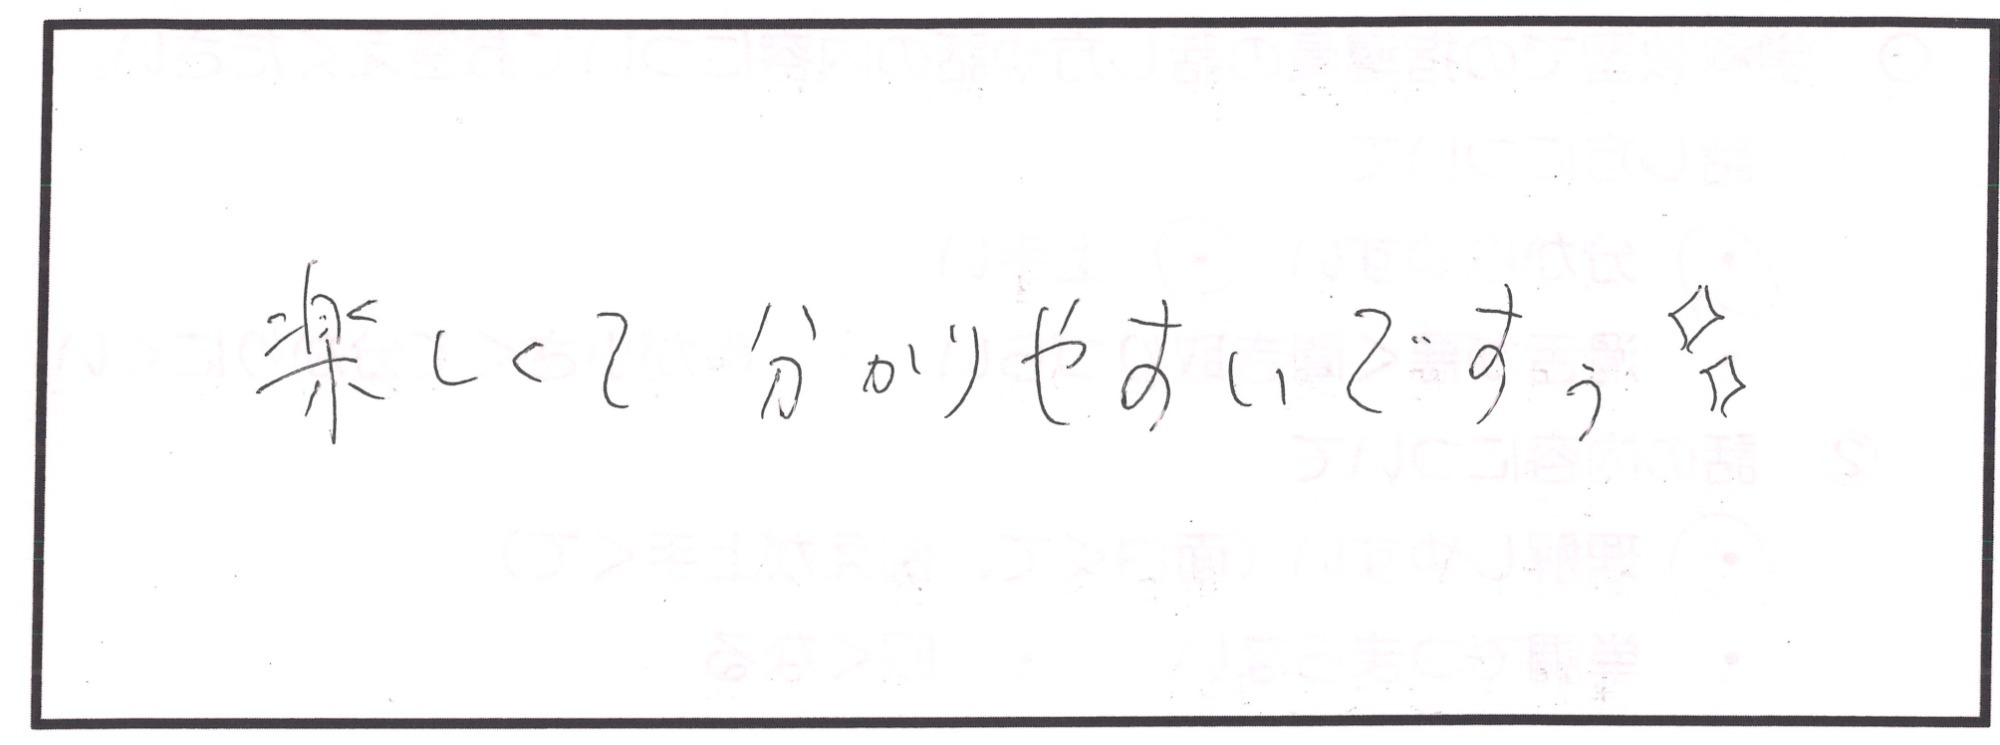 楽しくて分かりやすいですぅ✧✧